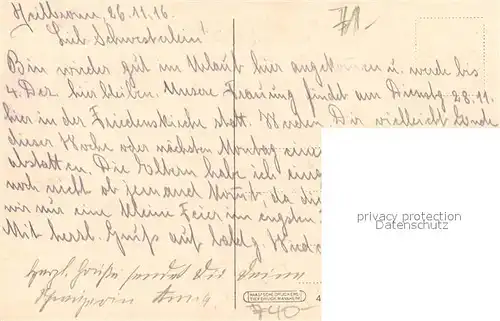 Heilbronn, 26.11.16.
Lieb Schwesterlein!
Bin wieder gut im Urlaub hier angekommen u. werde bis
4. Dez. hier bleiben. Unsere Trauung findet am Dienstg. 28.11.
hier in der Friedenskirche statt. Werden Dir vielleicht Ende
dieser Woche oder nächsten Montag
abstatten. Die Eltern habe ich
noch nicht ob jemand kommt, da
wir nur eine kleine Feier im engsten
Mit herzl. Gruß auf baldg.
Herzl. Grüße sendet Dir Deine
Schwägerin
privacy protection
Datenschutz
740-